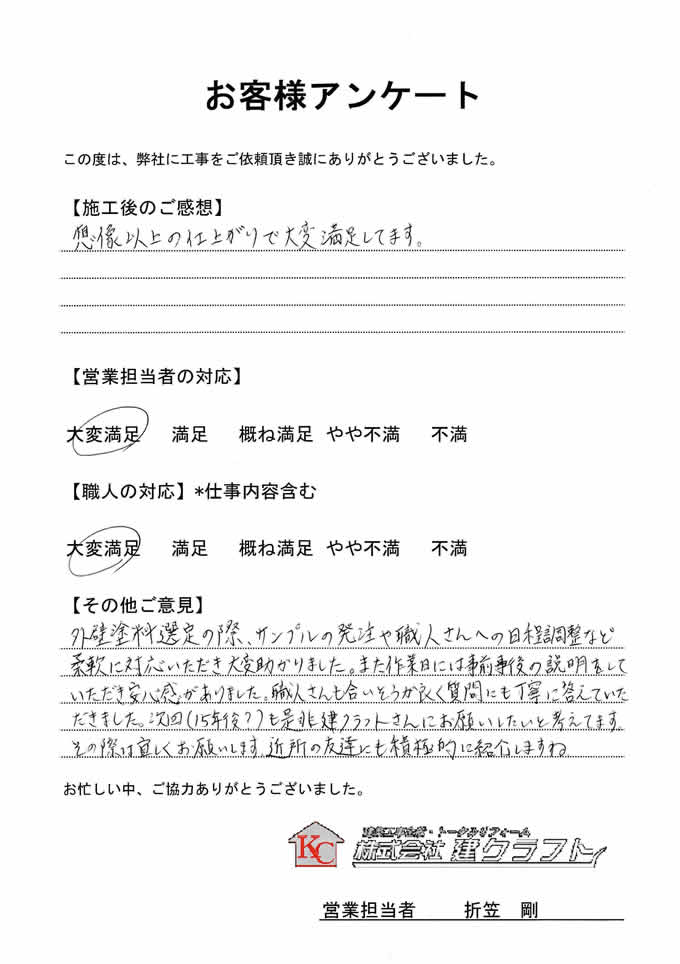 お客様アンケート
この度は、弊社に工事をご依頼頂き誠にありがとうございました。
【施工後のご感想】
想像以上の仕上がりで大変満足してます。
【営業担当者の対応】
大変満足 満足 概ね満足 やや不満 不満
【職人の対応】*仕事内容含む
大変満足 満足 概ね満足 やや不満 不満
【その他ご意見】
外壁塗料選定の際、サンプルの発注や職人さんへの日程調整など
柔軟に対応いただき大変助かりました。また作業日には事前事後の説明をして
いただき安心感がありました。職人さんも合いそうが良く質問にも丁寧に答えていた
だきました。次回(15年後?)も是非建クラフトさんにお願いしたいと考えてます。
その際は宜しくお願いします。近所の友達にも積極的に紹介しますね
お忙しい中、ご協力ありがとうございました。
KC
トータルリフォーム
株式会社 建クラフト
営業担当者 折笠 剛